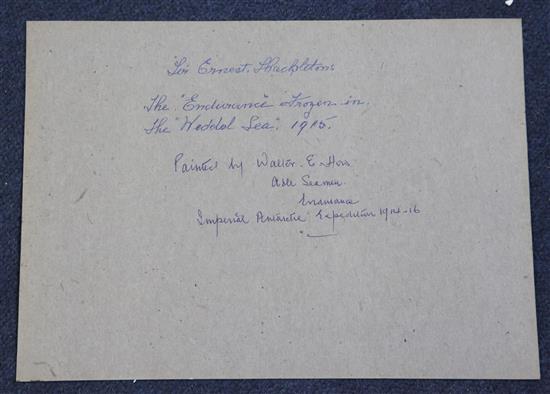 "Sir Ernest Shackletons
The "Endurance" Frozen in
The "Weddol Sea". 1915.
Painted by Walter. E. How
Able Seaman.
Endurance
Imperial Antarctic Expedition 1914-16